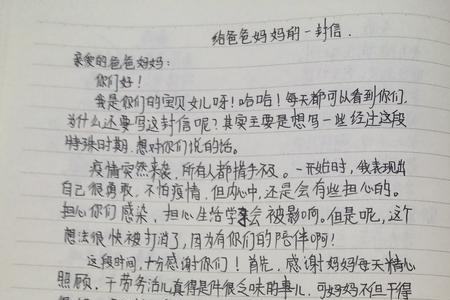 给爸爸妈妈的一封信.
亲爱的爸爸妈妈:
你们好!
我是你们的宝贝女儿呀!哈哈!每天都可以看到你们,
为什么还要写这封信呢?其实主要是想写一些经过这段
特殊时期,想对你们说的话。
疫情突然来袭,所有人都措手不及。一开始时,我表现出
自己很勇敢,不怕疫情,但内心中,还是会有些担心的。
担心你们感染,担心生活学会被影响。但是呢,这个
想法很快被打消了,因为有你们的陪伴啊!
这段时间,十分感谢你们!首先,感谢妈妈每天精心
照顾,干劳务活儿真得是件很乏味的事儿,可妈妈不但干得